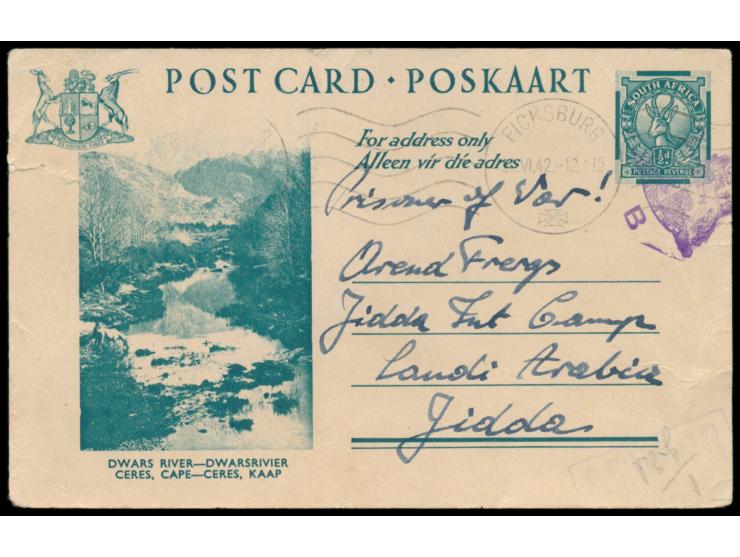 POST CARD · POSKAART
EX UNITATE VIRES
SOUTH AFRICA
½d
POSTAGE REVENUE
For address only
Alleen vir die adres
FICKSBURG
VI.42.-12
B
Prisoner of War!
Arend Frergs
Jidda Int Camp
Saudi Arabia
Jidda
DWARS RIVER—DWARSRIVIER
CERES, CAPE—CERES, KAAP